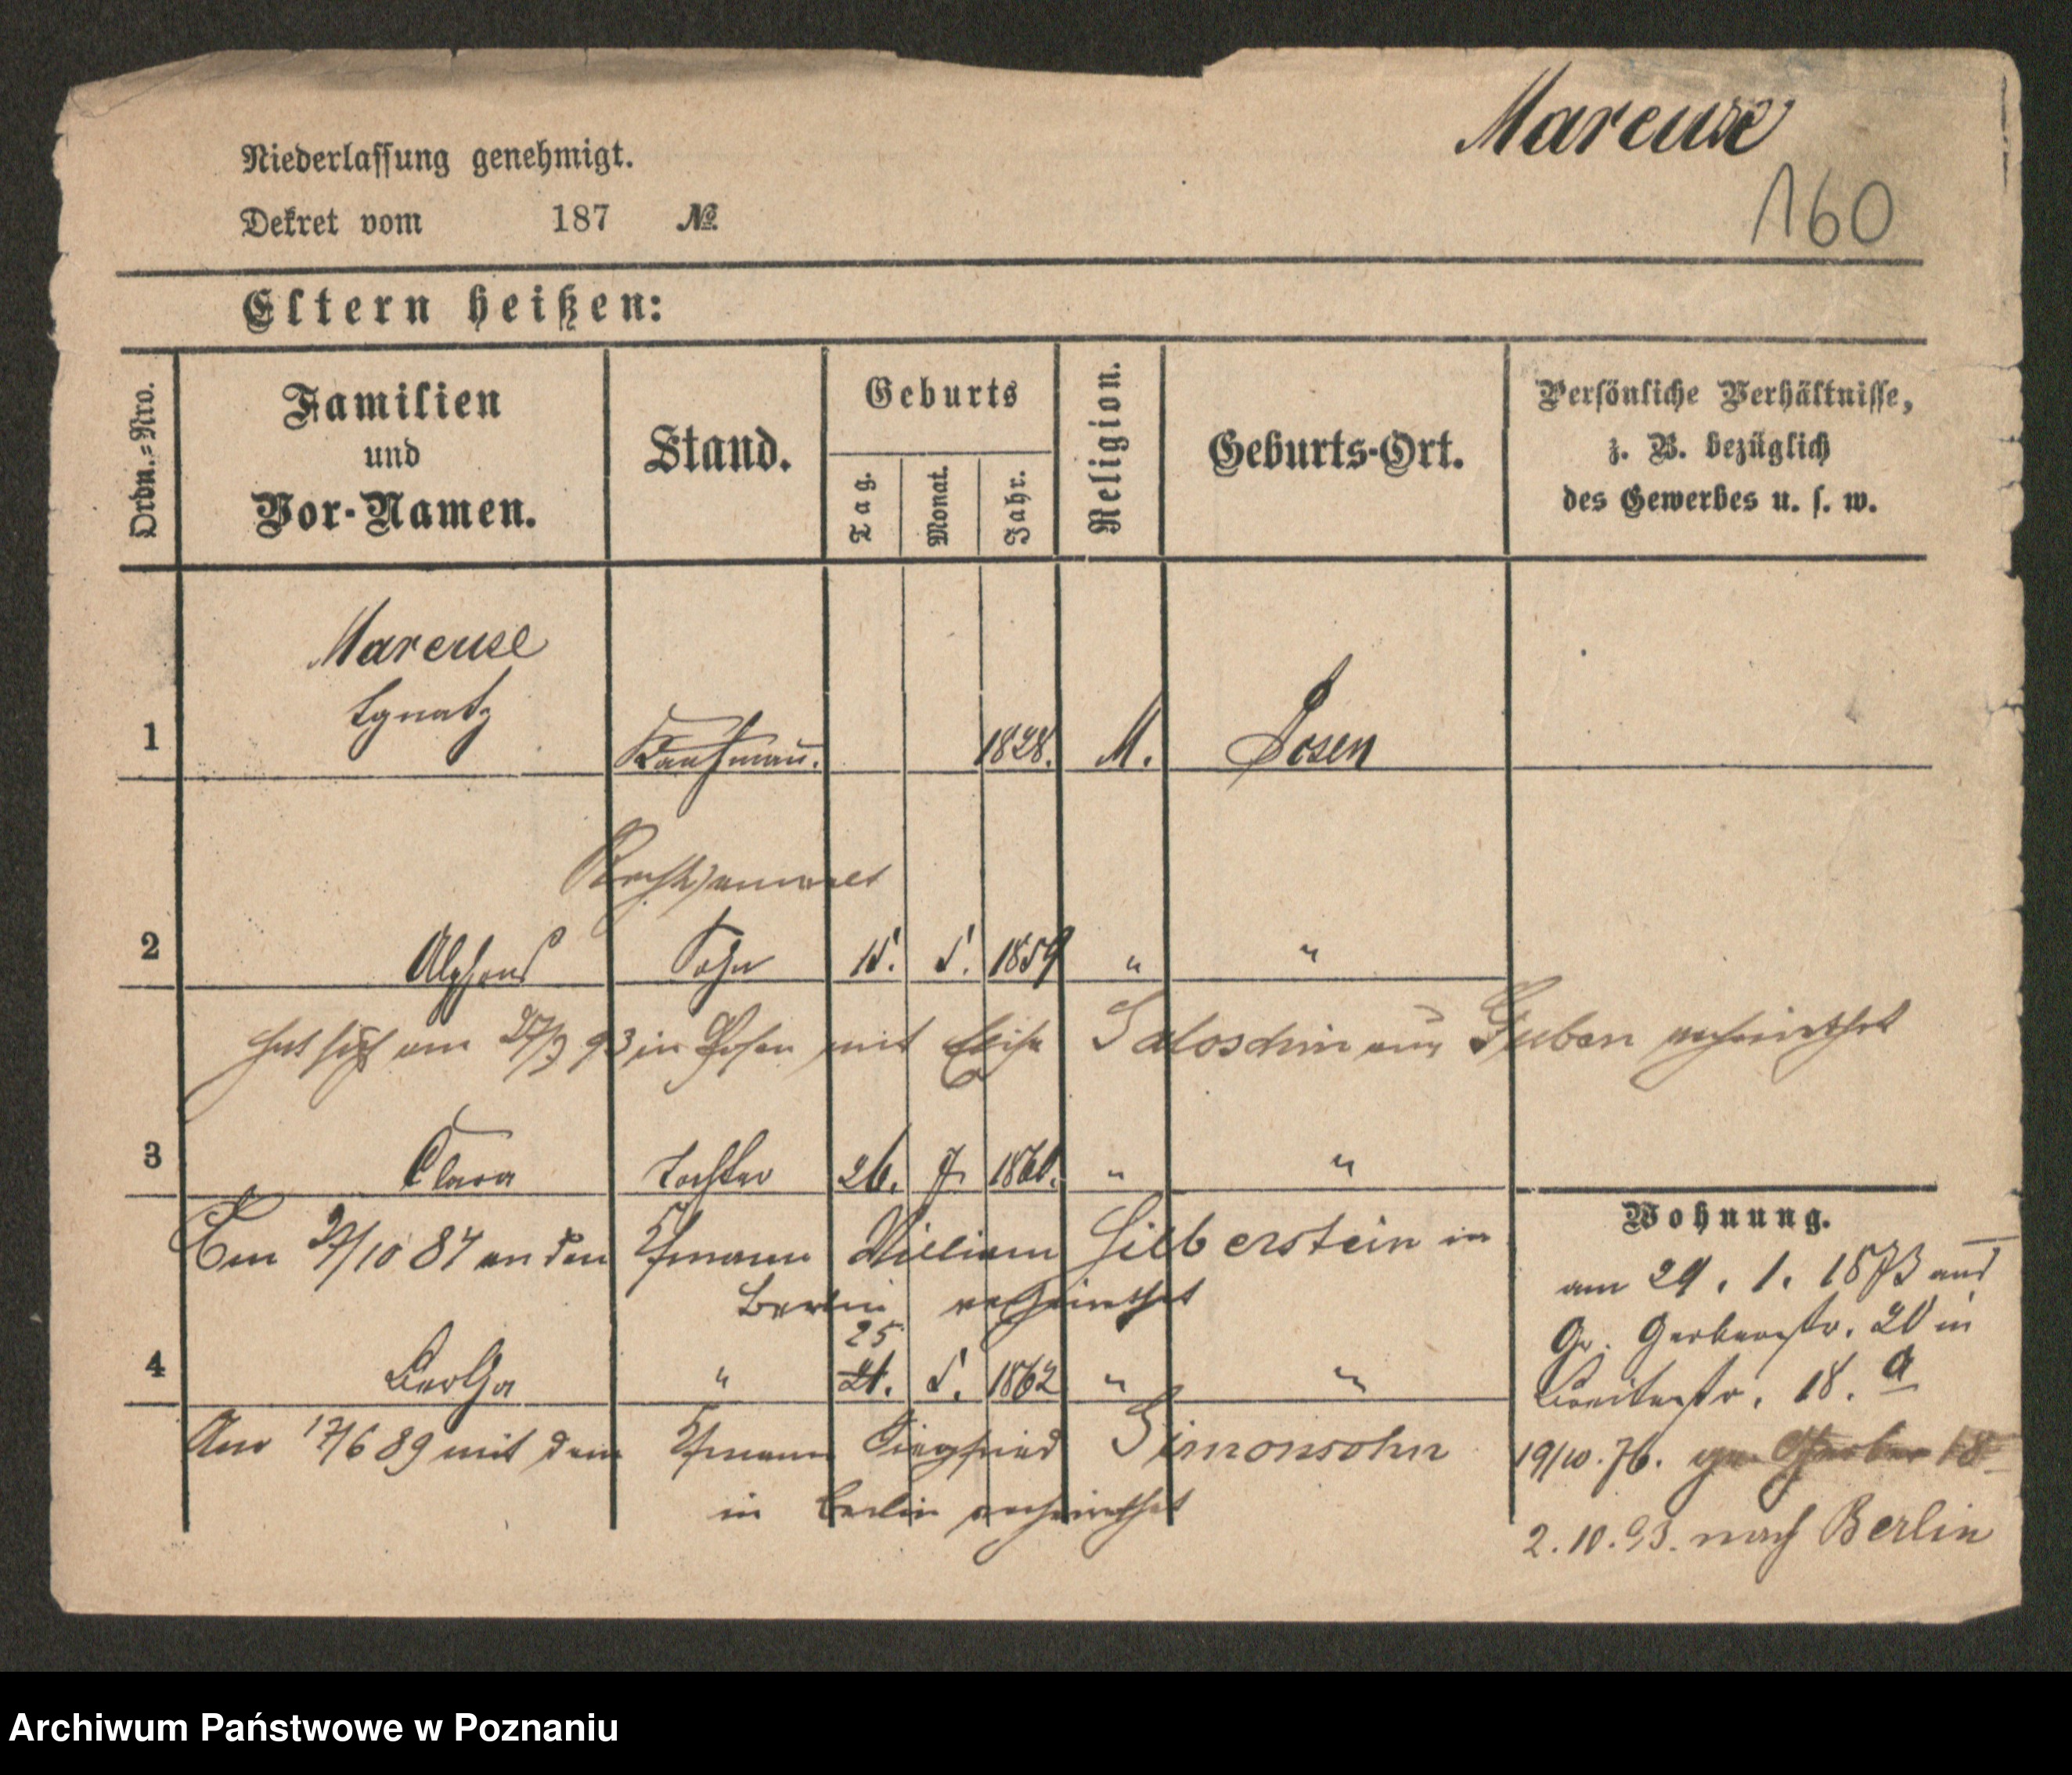 Marcuse
160
Niederlassung genehmigt.
Dekret vom 187 №
Eltern heißen:
Ordn.-Nro.
Familien und Vor-Namen.
Stand.
Geburts
Tag.
Monat.
Jahr.
Religion.
Geburts-Ort.
Persönliche Verhältnisse,
z. B. bezüglich
des Gewerbes u. s. w.
Marcuse
1 Ignatz Kaufmann. 1828. M. Posen
Rechtsanwalt
2 Alphons Sohn 15. 5. 1859 " "
hat sich am 27/3 93 in Posen mit Elise Saloschin aus Guben verheirathet
3 Clara Tochter 26. 7. " "
27/10 84 an den Kfmann William Silberstein in
Berlin verheirathet
25
4 Bertha " 21. 5. 1862 " "
Am 17/6 89 mit dem Kfmann Siegfried Simonsohn
in Berlin verheirathet
Wohnung.
am 29. 1. 1873 aus
Gr. Gerberstr. 20 in
Breitestr. 18. a
19/10. 76. gr. Gerber 18
2. 10. 93. nach Berlin
Archiwum Państwowe w Poznaniu